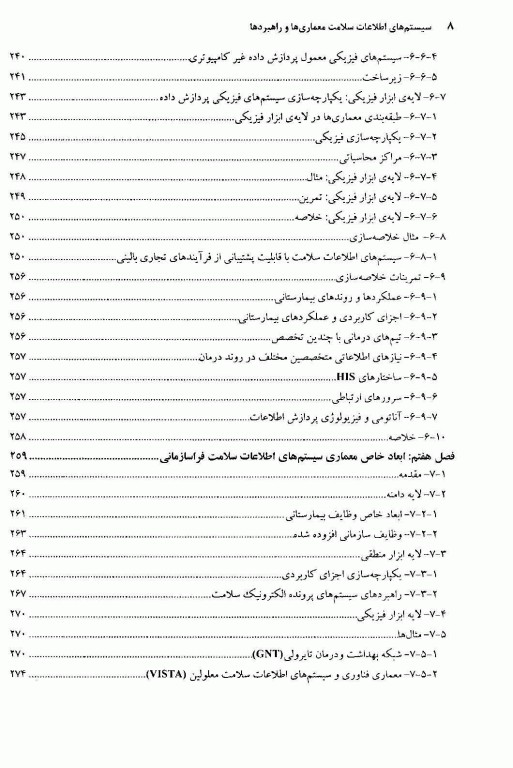 ۸ سیستم‌های اطلاعات سلامت معماری‌ها و راهبردها
۶-۶-۴- سیستم‌های فیزیکی معمول پردازش داده غیر کامپیوتری ........ ۲۴۰
۶-۶-۵- زیرساخت ........ ۲۴۱
۶-۷- لایه‌ی ابزار فیزیکی: یکپارچه‌سازی سیستم‌های فیزیکی پردازش داده ........ ۲۴۳
۶-۷-۱- طبقه‌بندی معماری‌ها در لایه‌ی ابزار فیزیکی ........ ۲۴۳
۶-۷-۲- یکپارچه‌سازی فیزیکی ........ ۲۴۵
۶-۷-۳- مراکز محاسباتی ........ ۲۴۷
۶-۷-۴- لایه‌ی ابزار فیزیکی: مثال ........ ۲۴۸
۶-۷-۵- لایه‌ی ابزار فیزیکی: تمرین ........ ۲۴۹
۶-۷-۶- لایه‌ی ابزار فیزیکی: خلاصه ........ ۲۵۰
۶-۸- مثال خلاصه‌سازی ........ ۲۵۰
۶-۸-۱- سیستم‌های اطلاعات سلامت با قابلیت پشتیبانی از فرآیندهای تجاری بالینی ........ ۲۵۰
۶-۹- تمرینات خلاصه‌سازی ........ ۲۵۶
۶-۹-۱- عملکردها و روندهای بیمارستانی ........ ۲۵۶
۶-۹-۲- اجزای کاربردی و عملکردهای بیمارستانی ........ ۲۵۶
۶-۹-۳- تیم‌های درمانی با چندین تخصص ........ ۲۵۶
۶-۹-۴- نیازهای اطلاعاتی متخصصین مختلف در روند درمان ........ ۲۵۷
۶-۹-۵- ساختارهای HIS ........ ۲۵۷
۶-۹-۶- سرورهای ارتباطی ........ ۲۵۷
۶-۹-۷- آناتومی و فیزیولوژی پردازش اطلاعات ........ ۲۵۷
۶-۱۰- خلاصه ........ ۲۵۸
فصل هفتم: ابعاد خاص معماری سیستم‌های اطلاعات سلامت فراسازمانی ........ ۲۵۹
۷-۱- مقدمه ........ ۲۵۹
۷-۲- لایه دامنه ........ ۲۶۰
۷-۲-۱- ابعاد خاص وظایف بیمارستانی ........ ۲۶۱
۷-۲-۲- وظایف سازمانی افزوده شده ........ ۲۶۳
۷-۳- لایه ابزار منطقی ........ ۲۶۴
۷-۳-۱- یکپارچه‌سازی اجزای کاربردی ........ ۲۶۴
۷-۳-۲- راهبردهای سیستم‌های پرونده الکترونیک سلامت ........ ۲۶۷
۷-۴- لایه ابزار فیزیکی ........ ۲۷۰
۷-۵- مثال‌ها ........ ۲۷۰
۷-۵-۱- شبکه بهداشت ودرمان تایرولی(GNT) ........ ۲۷۰
۷-۵-۲- معماری فناوری و سیستم‌های اطلاعات سلامت معلولین (VISTA) ........ ۲۷۴